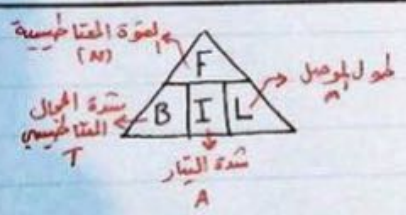 القوة المغناطيسية
(N)
F
طول الموصل
م
شدة المجال
المغناطيسي
T
B I L
شدة التيار
A